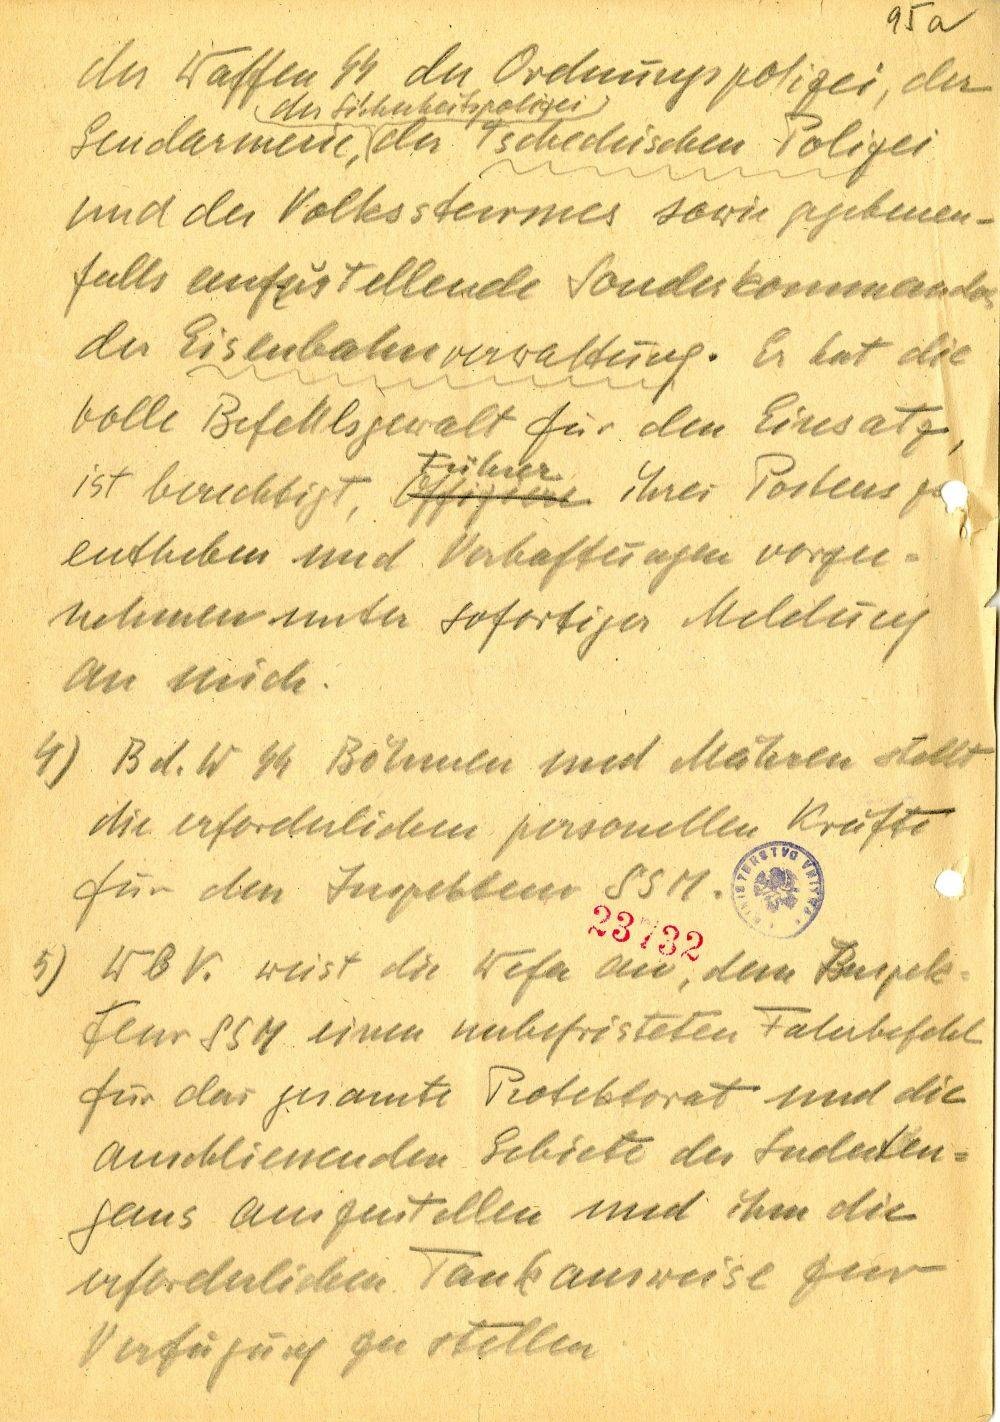 95a
der Waffen SS der Ordnungspolizei, der
(der Sicherheitspolizei)
Gendarmerie, der Tschechischen Polizei
und des Volkssturmes sowie gegebenen-
falls aufzustellende Sonderkommandos
der Eisenbahnverwaltung. Er hat die
volle Befehlsgewalt für den Einsatz,
Führer
ist berechtigt, Offiziere ihres Postens zu
entheben und Verhaftungen vorzu-
nehmen unter sofortiger Meldung
an mich.
4) Bd. W SS Böhmen und Mähren stellt
die erforderlichen personellen Kräfte
für den Inspekteur SSM.
MINISTERSTVO VNITRA
23732
5) WBV. weist die Wefa an, dem Inspek-
teur SSM einen unbefristeten Fahrbefehl
für das gesamte Protektorat und die
anschliessenden Gebiete des Sudeten-
gaus auszustellen und ihm die
erforderlichen Tankausweise zur
Verfügung zu stellen